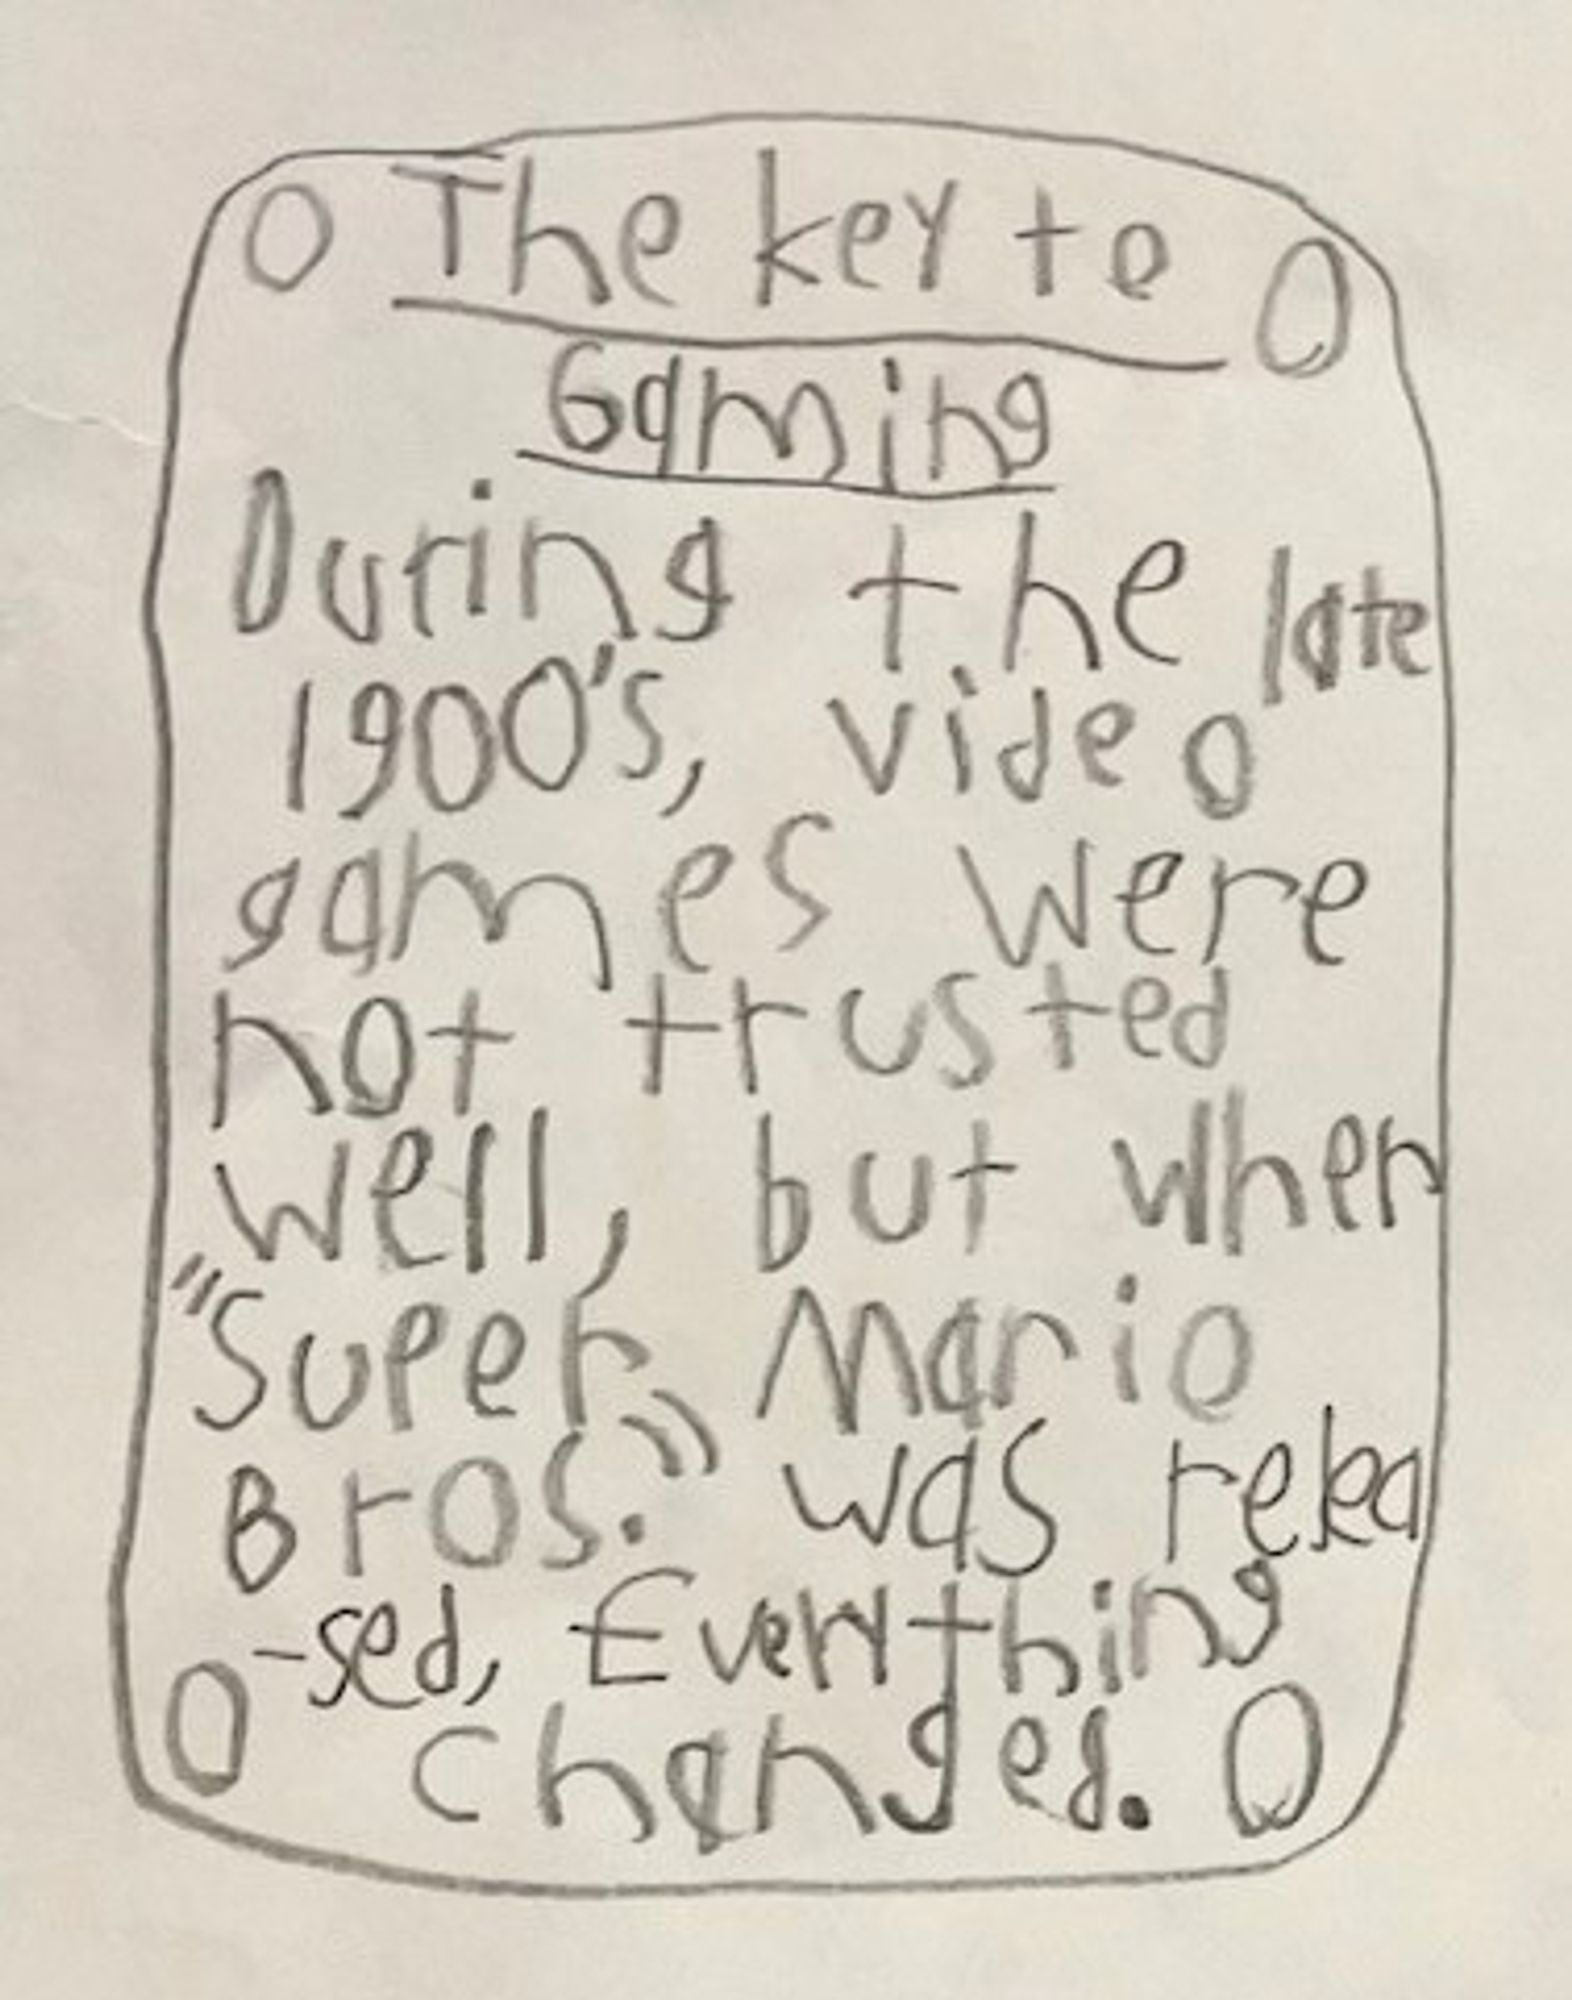 The key to
Gaming
During the late
1900's, video
games were
not trusted
well, but when
"Super Mario
Bros." was relea
-sed, Everything
changed.